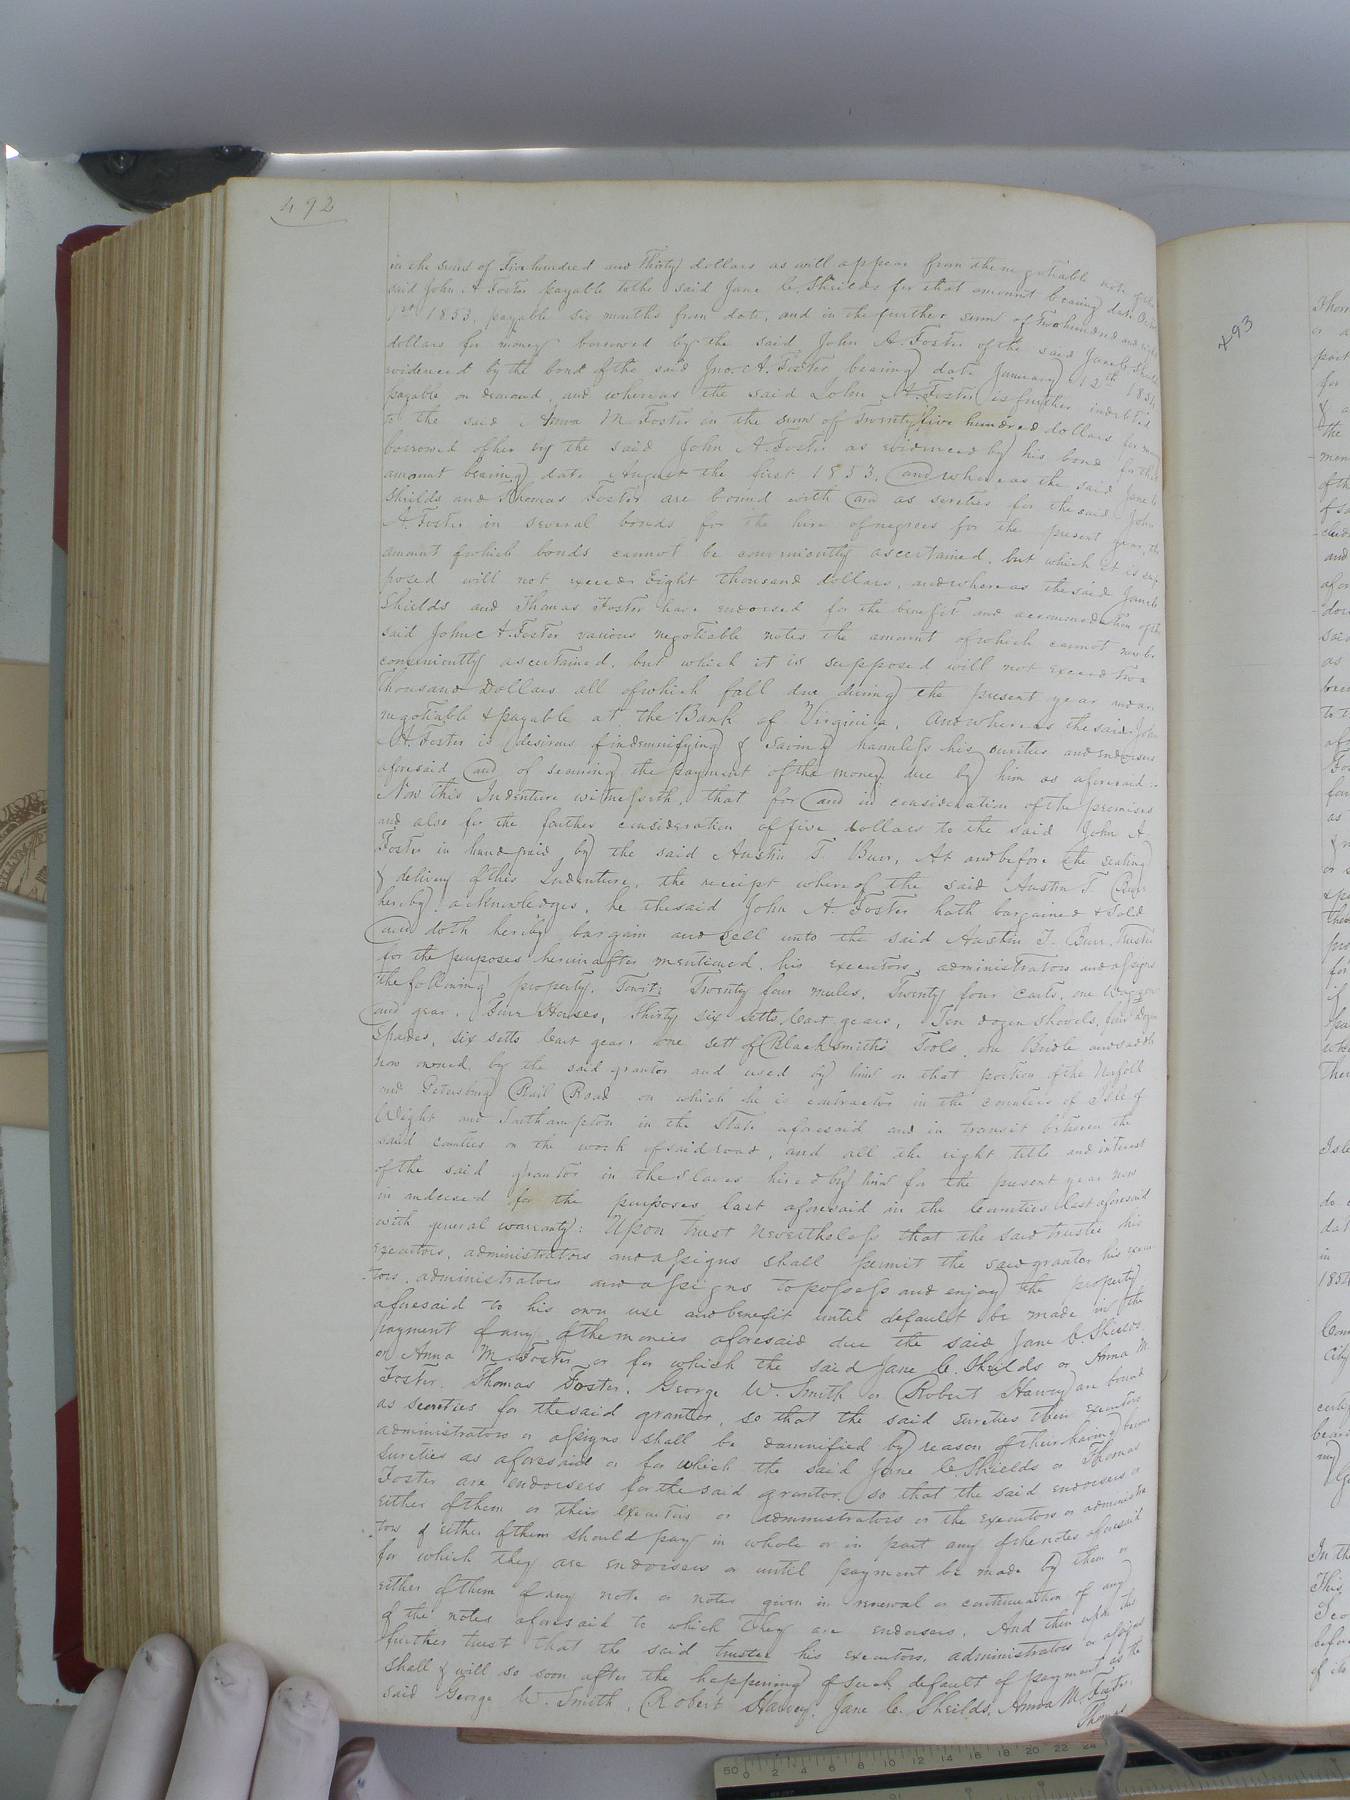 492
in the sum of Five hundred and Thirty dollars as will appear from the negotiable note of the
said John A Foster payable to the said Jane C. Sheilds for that amount bearing date
1st 1853, payable six months from date, and in the further sum of Two hundred and eight
dollars for money borrowed by the said John A. Foster of the said Jane C. Sheilds
evidenced by the bond of the said Jno. A. Foster bearing date January 12th 1854,
payable on demand, and whereas the said John A. Foster is further indebted
to the said Anna M Foster in the sum of Twenty five hundred dollars for money
borrowed of her by the said John A. Foster as evidenced by his bond for that
amount bearing date August the first 1853, and whereas the said Jane C
Shields and Thomas Foster are bound with and as sureties for the said John
A Foster in several bonds for the hire of negroes for the present year, the
amount of which bonds cannot be conveniently ascertained, but which it is sup
posed will not exceed Eight thousand dollars, and whereas the said Jane C
Shields and Thomas Foster have endorsed for the benefit and accommodation of the
said John A. Foster various negotiable notes the amount of which cannot now be
conveniently ascertained, but which it is supposed will not exceed Two
Thousand Dollars all of which fall due during the present year and are
negotiable & payable at the Bank of Virginia, And whereas the said John
A. Foster is desirous of indemnifying & saving harmless his sureties and endorsers
aforesaid and of securing the payment of the money due by him as aforesaid.
Now this Indenture witnesseth, that for and in consideration of the premises
and also for the further consideration of five dollars to the said John A
Foster in hand paid by the said Austin T. Burr, At and before the sealing
& delivery of this Indenture, the receipt whereof the said Austin T Burr
hereby acknowledges, he the said John A. Foster hath bargained & sold
and doth hereby bargain and sell unto the said Austin T. Burr, Trustee
for the purposes hereinafter mentioned, his executors, administrators and assigns
the following property. Towit: Twenty four mules, Twenty four carts, one Waggon
and gear, Four Horses, Thirty six setts Cart gears, Ten dozen shovels, four Dozen
Spades, six setts Cart gear, one sett of Blacksmith's Tools, one Bridle and saddle
now owned, by the said grantor and used by him on that portion of the Norfolk
and Petersburg Rail Road on which he is contractor in the counties of Isle of
Wight and Southampton in the State aforesaid and in transit between the
said counties on the work of said road, and all the right title and interest
of the said grantor in the slaves hired by him for the present year now
in and used for the purposes last aforesaid in the Counties last aforesaid
with general warranty: Upon trust nevertheless that the said trustee his
executors, administrators and assigns shall permit the said grantor his execu
tors, administrators and assigns to possess and enjoy the property
aforesaid to his own use and benefit until default be made in the
payment of any of the monies aforesaid due the said Jane C. Shields.
or Anna M. Foster or for which the said Jane C. Sheilds or Anna M.
Foster, Thomas Foster, George W. Smith or Robert Harvey are bound
as sureties for the said grantor, so that the said sureties their executors
administrators or assigns shall be damnified by reason of their having become
sureties as aforesaid or for which the said Jane C. Sheilds or Thomas
Foster are endorsers for the said grantor, so that the said endorsers or
either of them or their executors or administrators or the executors or administra
tors of either of them should pay in whole or in part any of the notes aforesaid
for which they are endorsers or until payment be made by them or
either of them of any note or notes given in renewal or continuation of any
of the notes aforesaid to which they are endorsers. And then upon this
further trust that the said trustee his executors, administrators or assigns
shall & will so soon after the happening of such default of payment as the
said George W. Smith, Robert Harvey, Jane C. Sheilds, Anna M. Foster,
Thomas
493